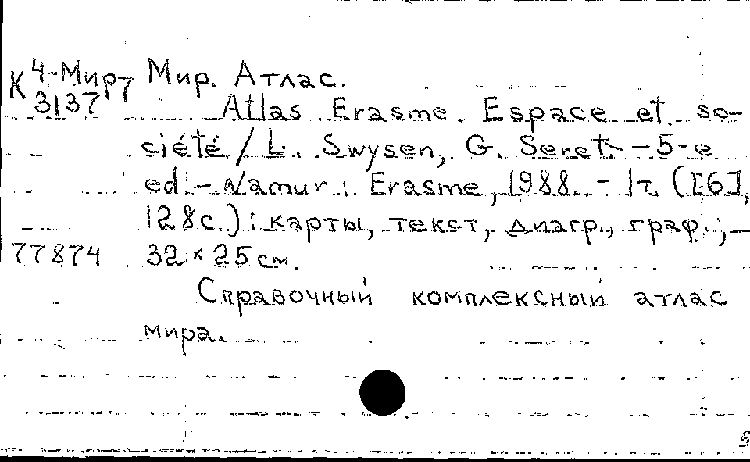 К 4-Мир7 Мир. Атлас.
3137 Atlas Erasme. Espace et so-
ciété / L. Swysen, G. Seret. – 5-e
ed. – Namur : Erasme, 1988. – 1т. ([6],
128с.) : карты, текст, диагр., граф.; –
77874 32 × 25 см.
Справочный комплексный атлас
мира.